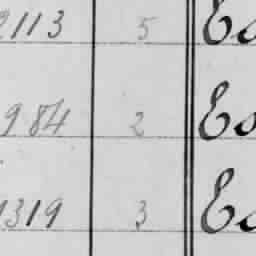 2113 5 Es
984 2 Es
1319 3 Es